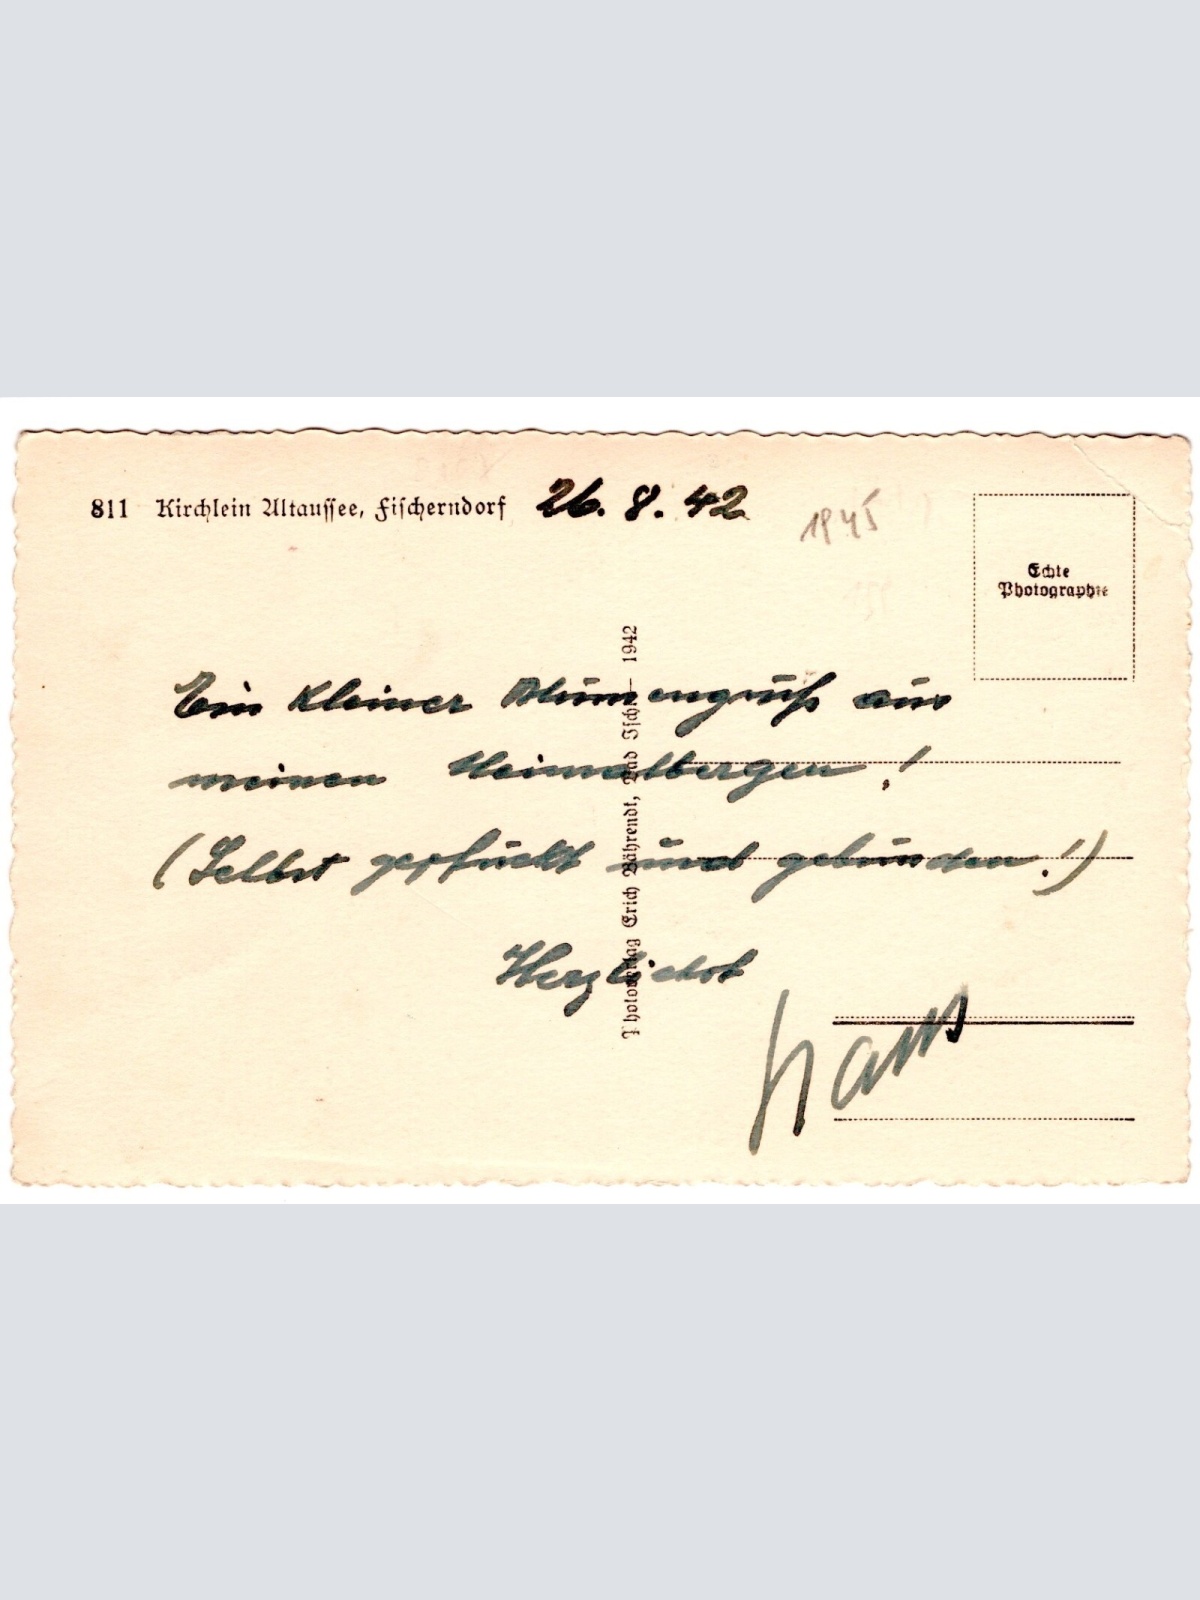 811 Kirchlein Altaussee, Fischerndorf 26. 8. 42
1945
Echte
Photographie
Ein kleiner Blumengruß aus
meinen Heimatbergen!
(Selbst gepflückt und gebunden!)
Herzlichst
Hans
Photoverlag Erich Bährendt, Bad Ischl — 1942